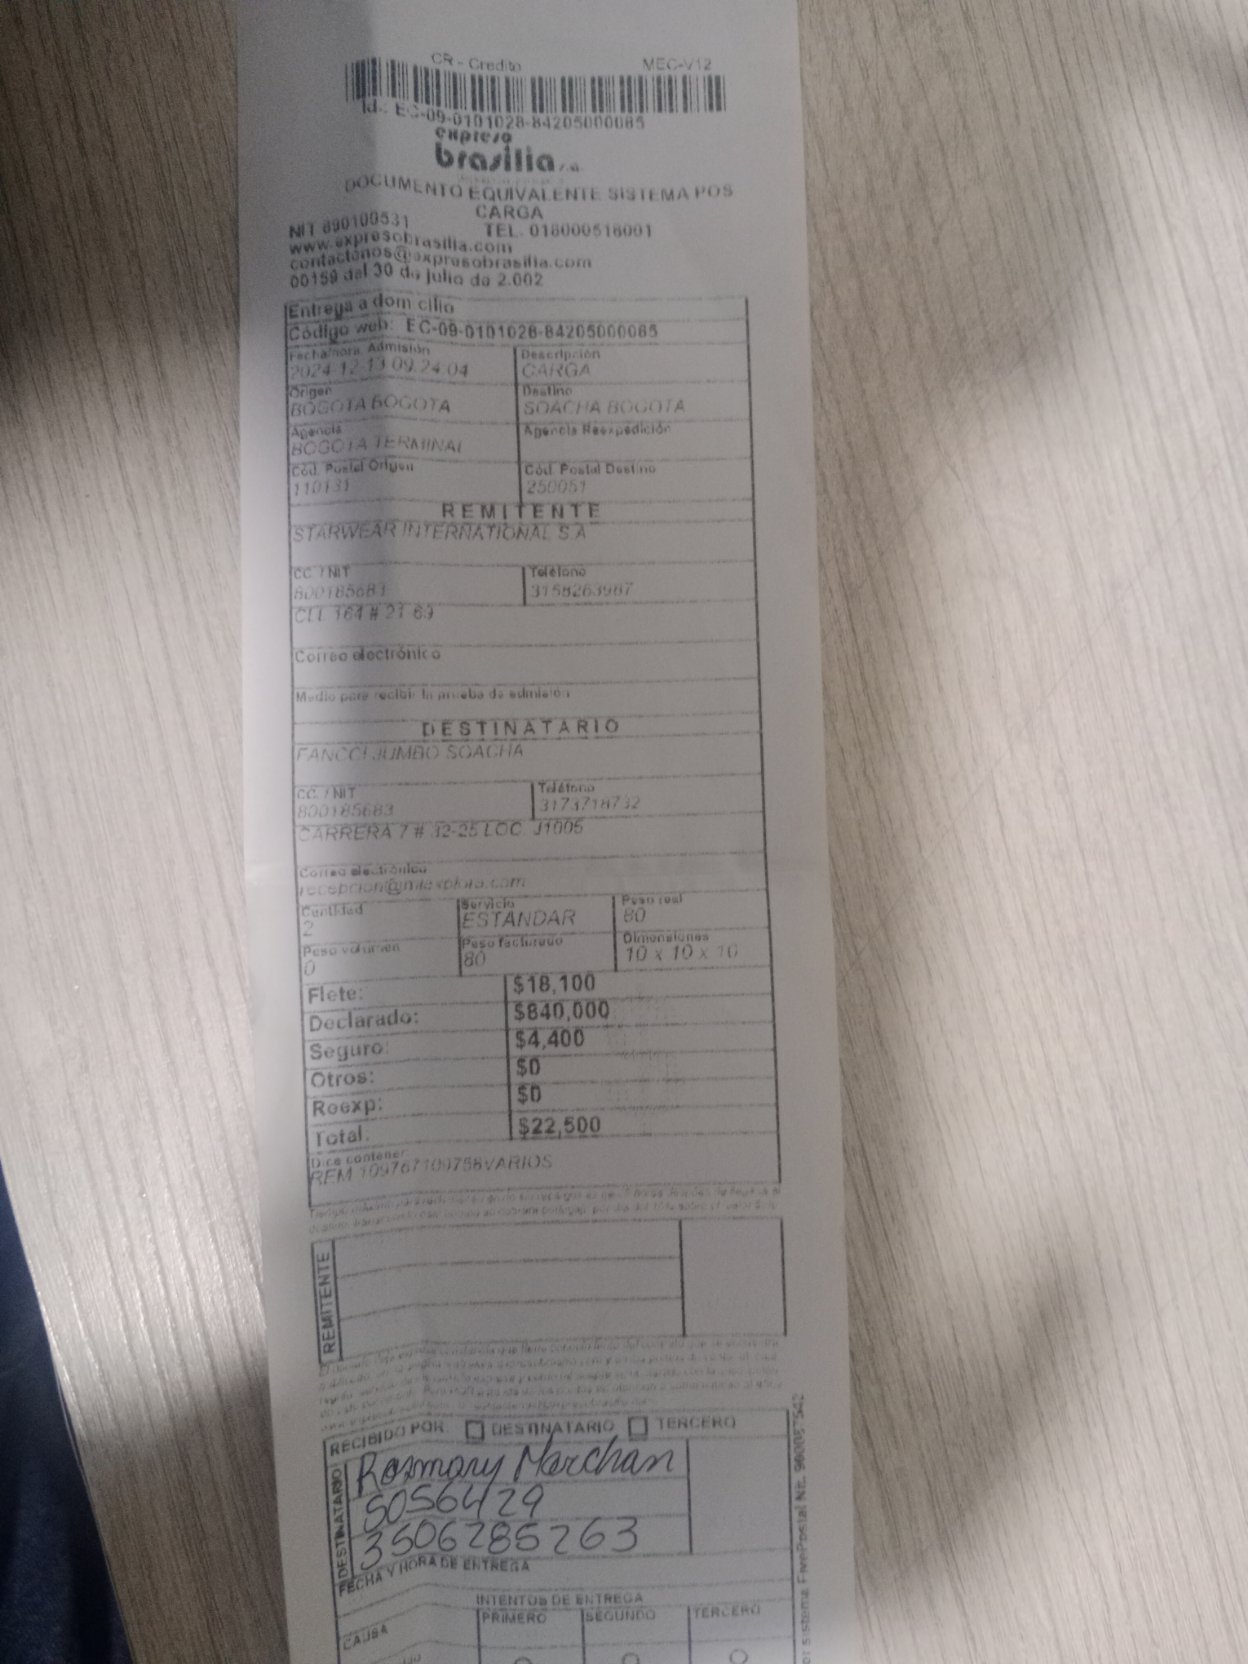 CR - Credito MEC-V12
Id.: EC-09-0101028-84205000085
expreso
brasilia s.a.
DOCUMENTO EQUIVALENTE SISTEMA POS
CARGA
NIT 890100531 TEL. 018000518001
www.expresobrasilia.com
contactenos@expresobrasilia.com
00159 del 30 de julio de 2.002
Entrega a domicilio
Código web: EC-09-0101028-84205000085
Fecha/hora Admisión Descripción
2024-12-13 09:24:04 CARGA
Origen Destino
BOGOTA BOGOTA SOACHA BOGOTA
Agencia Agencia Reexpedición
BOGOTA TERMINAL
Cód. Postal Origen Cód. Postal Destino
110131 250051
REMITENTE
STARWEAR INTERNATIONAL S.A
CC / NIT Teléfono
800185683 3158263987
CLL 164 # 21 63
Correo electrónico
Medio para recibir la prueba de admisión
DESTINATARIO
FANCCI JUMBO SOACHA
CC / NIT Teléfono
800185683 3173718732
CARRERA 7 # 32-25 LOC. J1005
Correo electrónico
Cantidad Servicio Peso real
2 ESTANDAR 80
Peso volumen Peso facturado Dimensiones
0 80 10 x 10 x 10
Flete: $18,100
Declarado: $840,000
Seguro: $4,400
Otros: $0
Reexp: $0
Total: $22,500
Dice contener
REM 109767109758VARIOS
REMITENTE
RECIBIDO POR: DESTINATARIO TERCERO
DESTINATARIO
Rosmary Marchan
5056429
3506285263
FECHA Y HORA DE ENTREGA
INTENTOS DE ENTREGA
CAUSA PRIMERO SEGUNDO TERCERO
sistema FivePostal Nit. 900087542